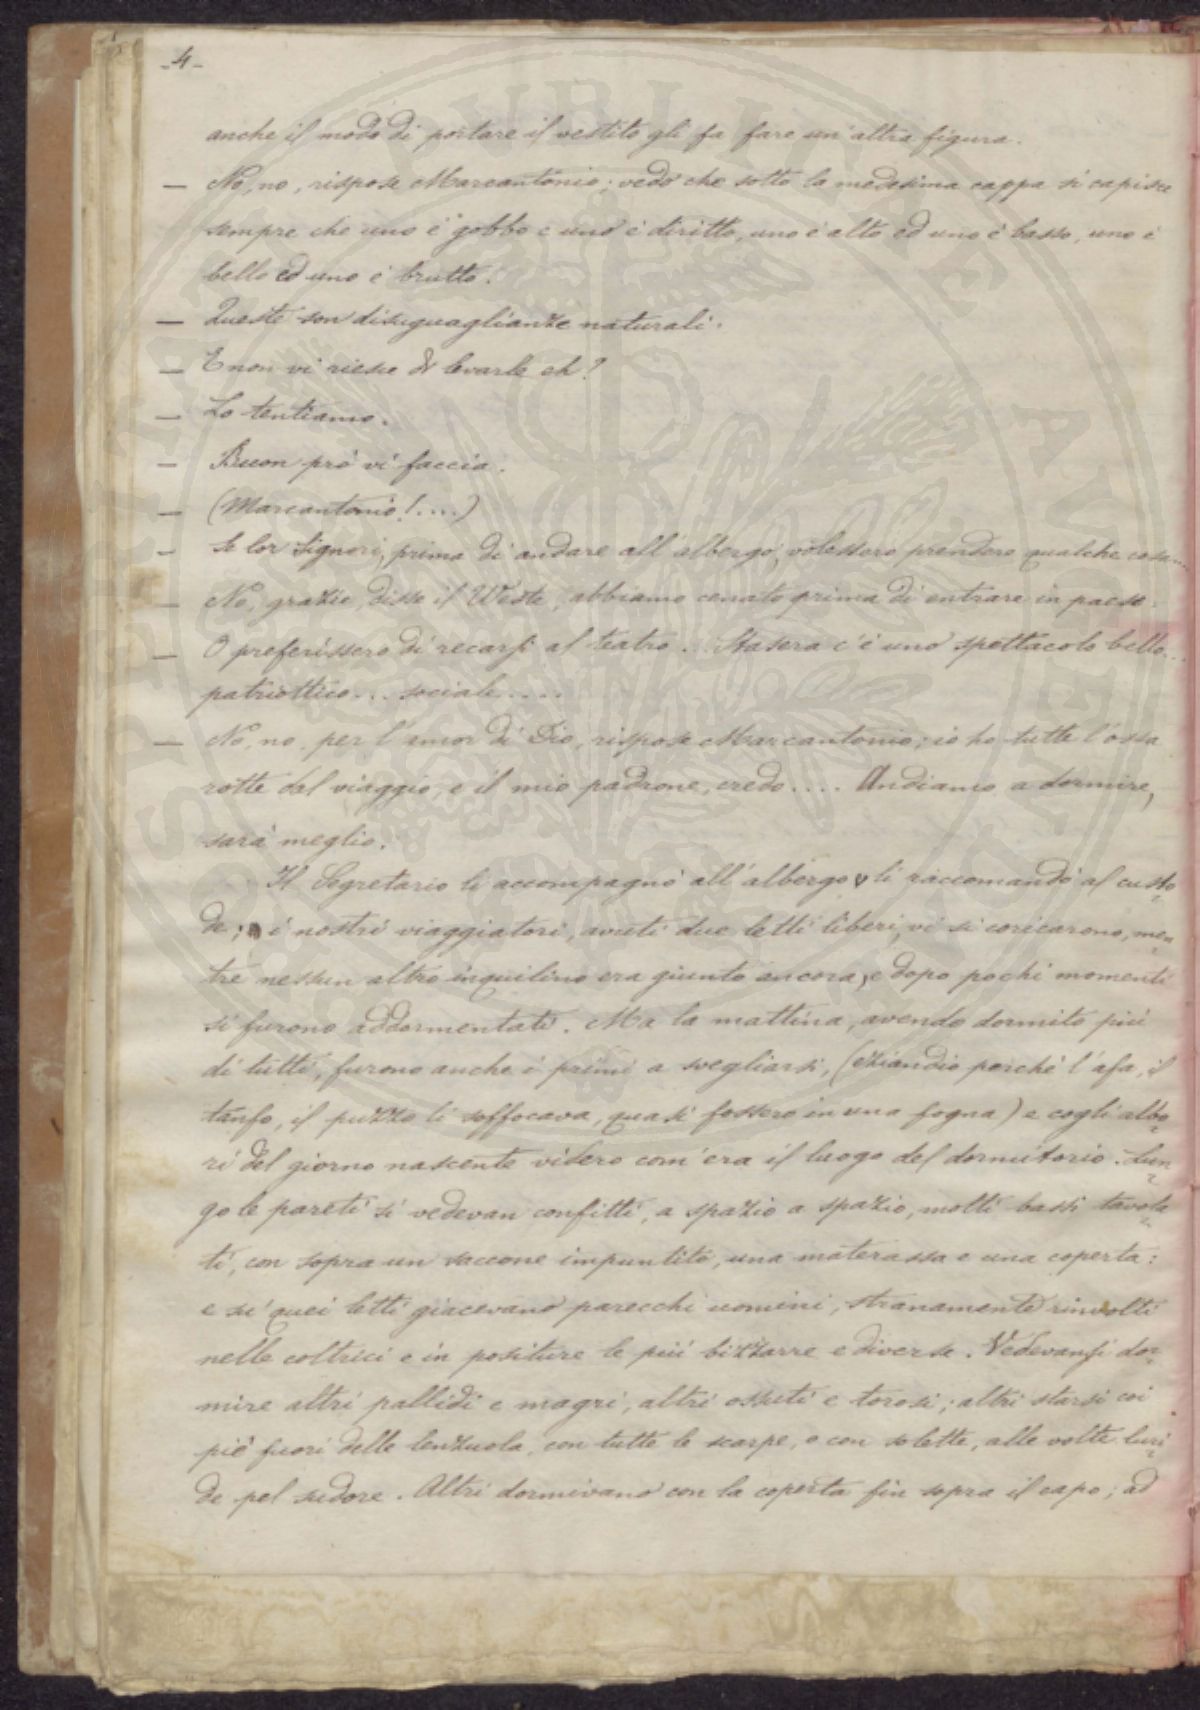 -4-
anche il modo di portare il vestito gli fa fare un'altra figura.
— No, no, rispose Marcantonio; vedo che sotto la medesima cappa si capisce
sempre che uno è gobbo e uno è diritto, uno è alto ed uno è basso, uno è
bello ed uno è brutto.
— Queste son disuguaglianze naturali.
— E non vi riesce di levarle eh?
— Lo tentiamo.
— Buon prò vi faccia.
— (Marcantonio!....)
— Se lor Signori, prima di andare all'albergo, volessero prendere qualche cosa...
— No, grazie, disse il Weste, abbiamo cenato prima di entrare in paese.
— O preferissero di recarsi al teatro. Stasera c'è uno spettacolo bello...
patriottico... sociale.....
— No, no, per l'amor di Dio, rispose Marcantonio; io ho tutte l'ossa
rotte dal viaggio, e il mio padrone, credo.... Andiamo a dormire,
sarà meglio.
Il Segretario li accompagnò all'albergo e li raccomandò al custo-
de; i nostri viaggiatori, avuti due letti liberi, vi si coricarono, men-
tre nessun altro inquilino era giunto ancora, e dopo pochi momenti
si furono addormentati. Ma la mattina, avendo dormito più
di tutti, furono anche i primi a svegliarsi, (eziandio perchè l'afa, il
tanfo, il puzzo li soffocava, quasi fossero in una fogna) e cogli albo-
ri del giorno nascente videro com'era il luogo del dormitorio. Lun-
go le pareti si vedevan confitti, a spazio a spazio, molti bassi tavola-
ti, con sopra un saccone impuntito, una materassa e una coperta:
e su quei letti giacevano parecchi uomini, stranamente rinvolti
nelle coltrici e in positure le più bizzarre e diverse. Vedevansi dor-
mire altri pallidi e magri, altri ossuti e torosi; altri starsi coi
piè fuori delle lenzuola, con tutte le scarpe, o con solette, alle volte luri-
de pel sudore. Altri dormivano con la coperta fin sopra il capo; ad